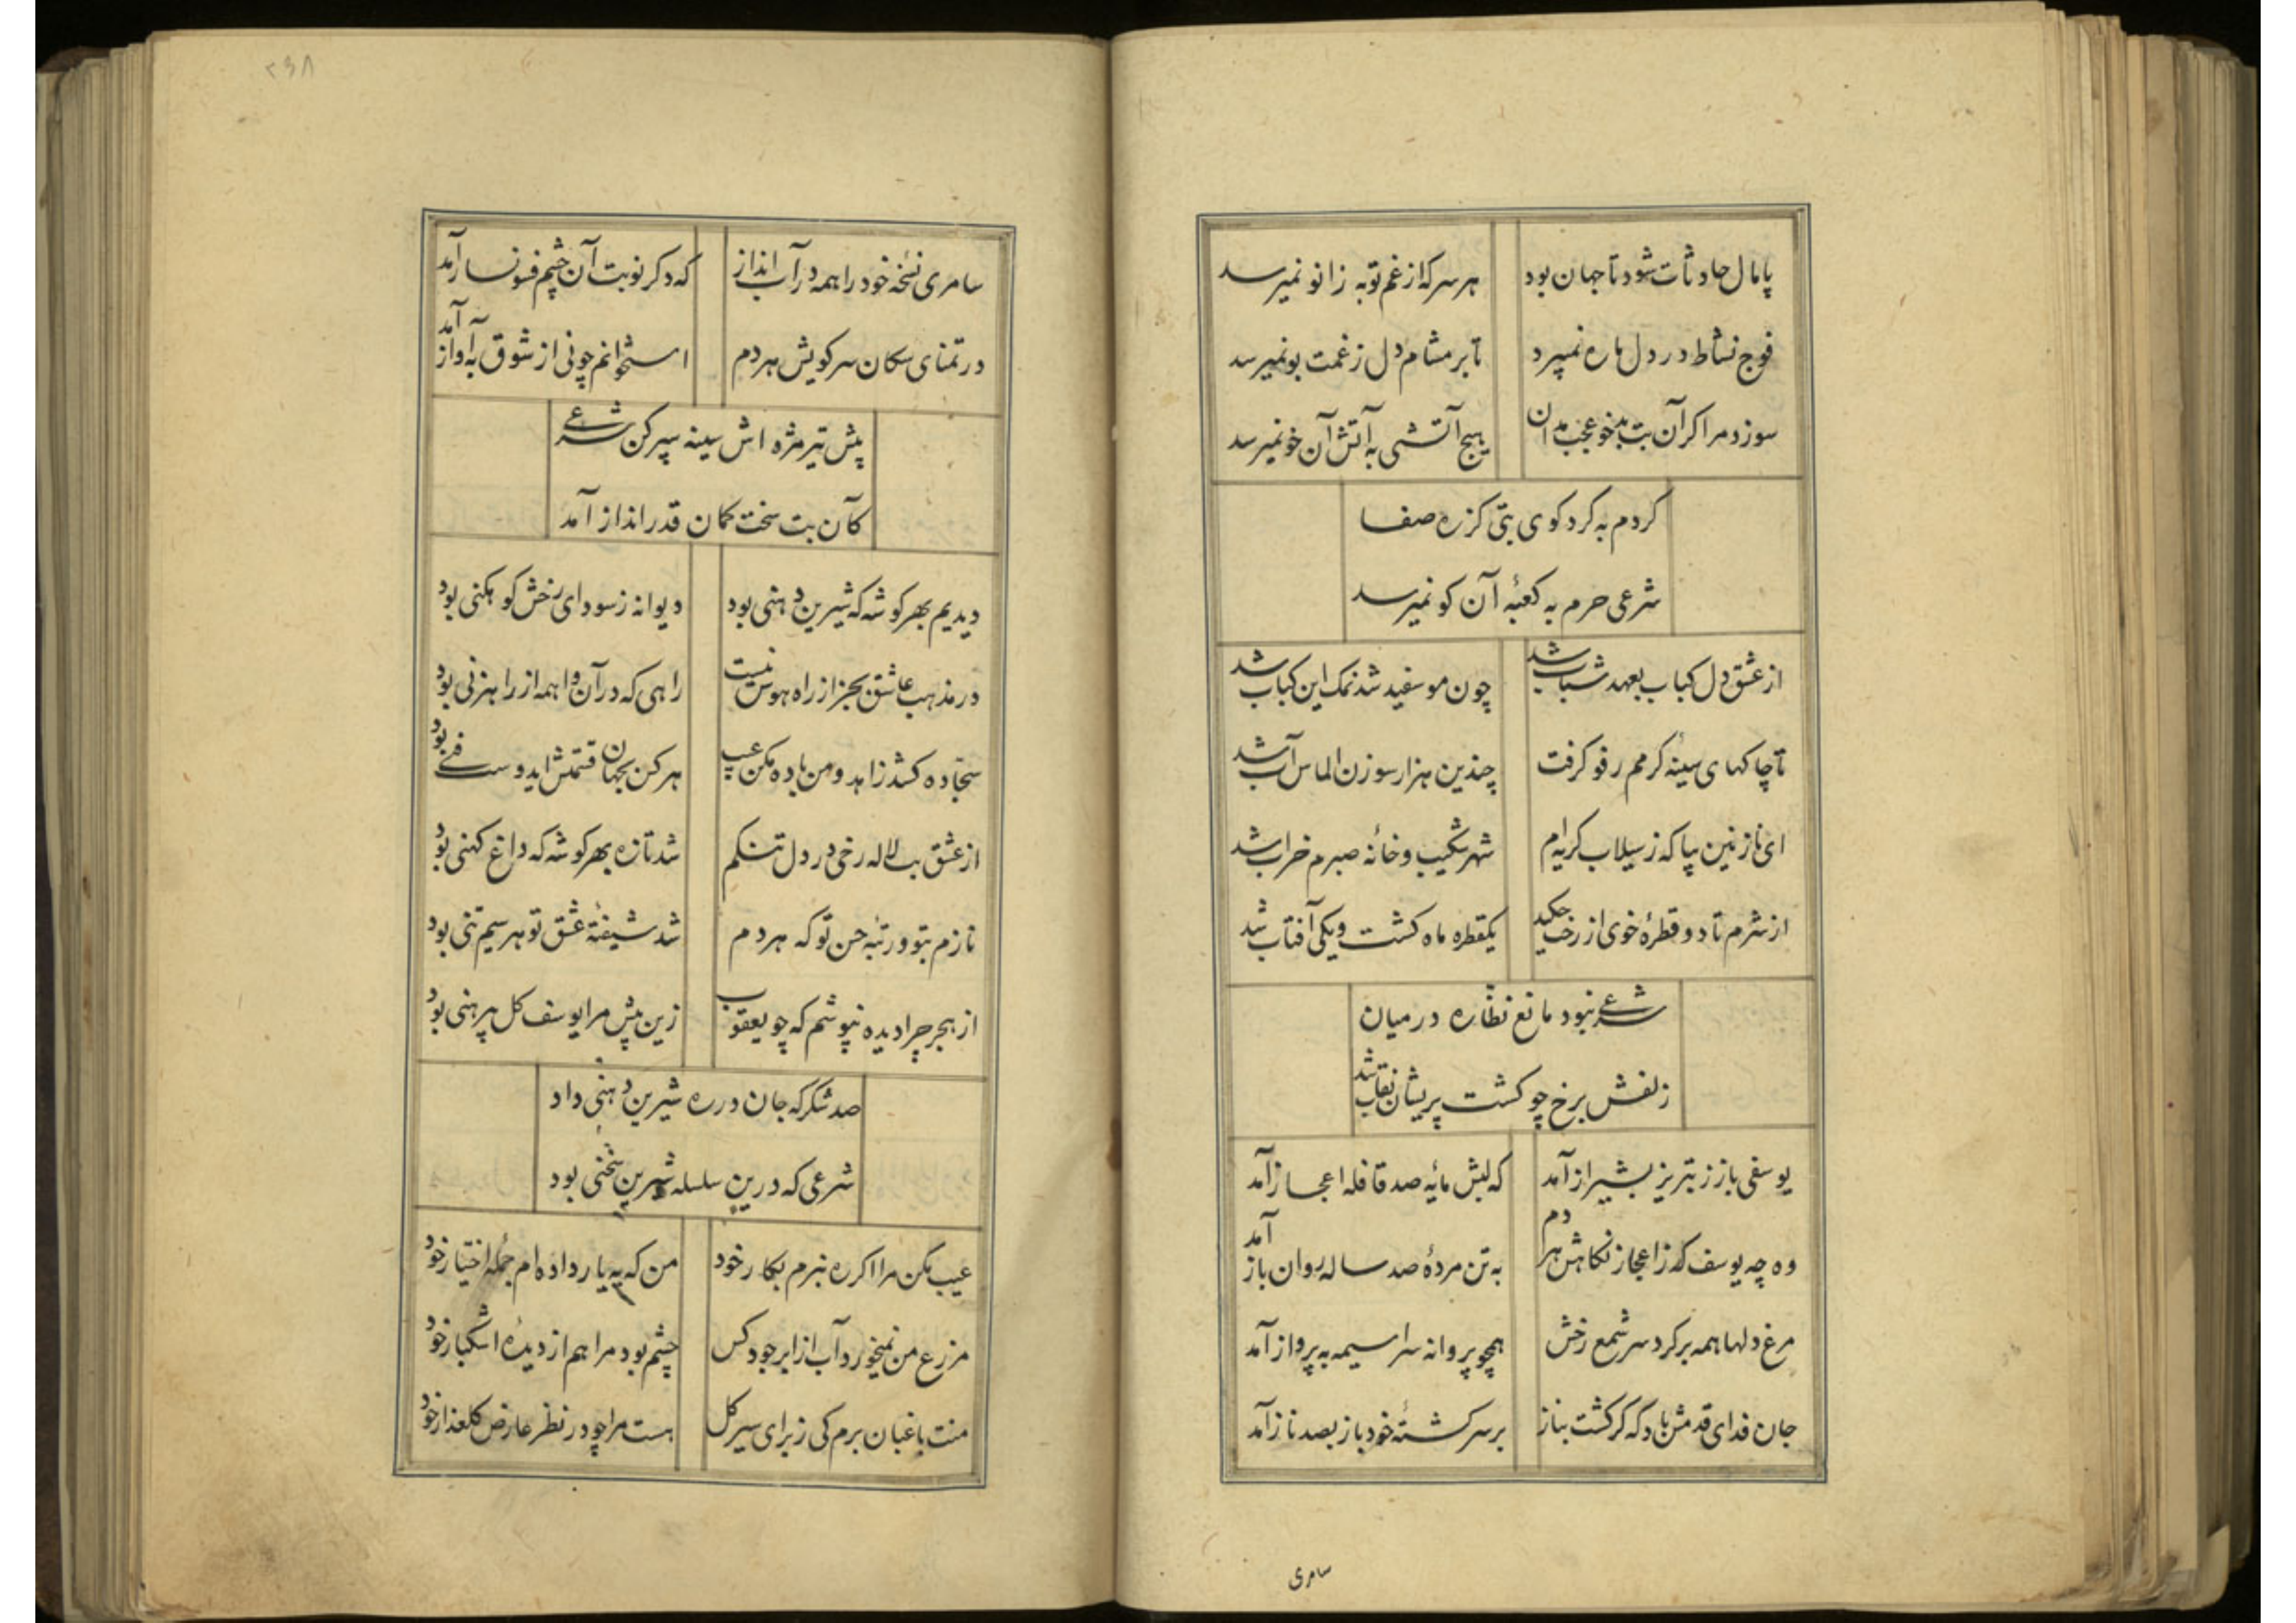 پامال حادثات شود تا جهان بود هر سر که از غم تو به زانو نمیرسد
فوج نشاط در دل ما ره نمیبرد تا بر مشام دل ز غمت بو نمیرسد
سوزد مرا اکر آن بت بدخو عجب مدان هیچ آتشی به آتش آن خو نمیرسد
کردم به کرد کوی بتی کز ره صفا
شرعی حرم به کعبهٔ آن کو نمیرسد
از عشق دل کباب بعهد شباب شد چون مو سفید شد نمک این کباب شد
تا چاکهای سینهٔ کرمم رفو کرفت چندین هزار سوزن الماس آب شد
ای نازنین بیا که ز سیلاب کریه‌ام شهر شکیب و خانهٔ صبرم خراب شد
از شرم تا دو قطرهٔ خوی از رخت چکید یکقطره ماه کشت و یکی آفتاب شد
شرعی نبود مانع نظاره در میان
زلفش برخ چو کشت پریشان نقاب شد
یوسفی باز ز تبریز بشیراز آمد که لبش مایهٔ صد قافله اعجاز آمد
وه چه یوسف که ز اعجاز نکاهش هر دم به تن مردهٔ صد ساله روان باز آمد
مرغ دلها همه بر کرد سر شمع رخش همچو پروانه سراسیمه به پرواز آمد
جان فدای قدمش باد که کر کشت بناز بر سر کشتهٔ خود باز بصد ناز آمد
سامری
۲۳۸
سامری نسخه خود را همه در آب انداز که دکر نوبت آن چشم فسونساز آمد
در تمنای سکان سر کویش هر دم استخوانم چو نی از شوق به آواز آمد
پیش تیر مژه اش سینه سپر کن شرعی
کآن بت سخت کمان قدر انداز آمد
دیدیم بهر کوشه که شیرین دهنی بود دیوانه ز سودای رخش کوهکنی بود
در مذهب عاشق بجز از راه هوس نیست راهی که در آن واهمه از راهزنی بود
سجاده کشد زاهد و من باده مکن عیب هر کس بجهان قسمتش ایدوست فنی بود
از عشق بت لاله رخی در دل تنکم شد تازه بهر کوشه که داغ کهنی بود
نازم بتو و رتبه حسن تو که هر دم شد شیفتهٔ عشق تو هر سیم تنی بود
از هجر چرا دیده نپوشم که چو یعقوب زین پیش مرا یوسف کل پیرهنی بود
صد شکر که جان در ره شیرین دهنی داد
شرعی که درین سلسله شیرین سخنی بود
عیب مکن مرا اکر ره نبرم بکار خود من که به یار داده‌ام جمله اختیار خود
مزرع من نمیخورد آب از ابر جود کس چشم بود مرا هم از دیدهٔ اشکبار خود
منت باغبان برم کی ز برای سیر کل هست مرا چو در نظر عارض کلعذار خود